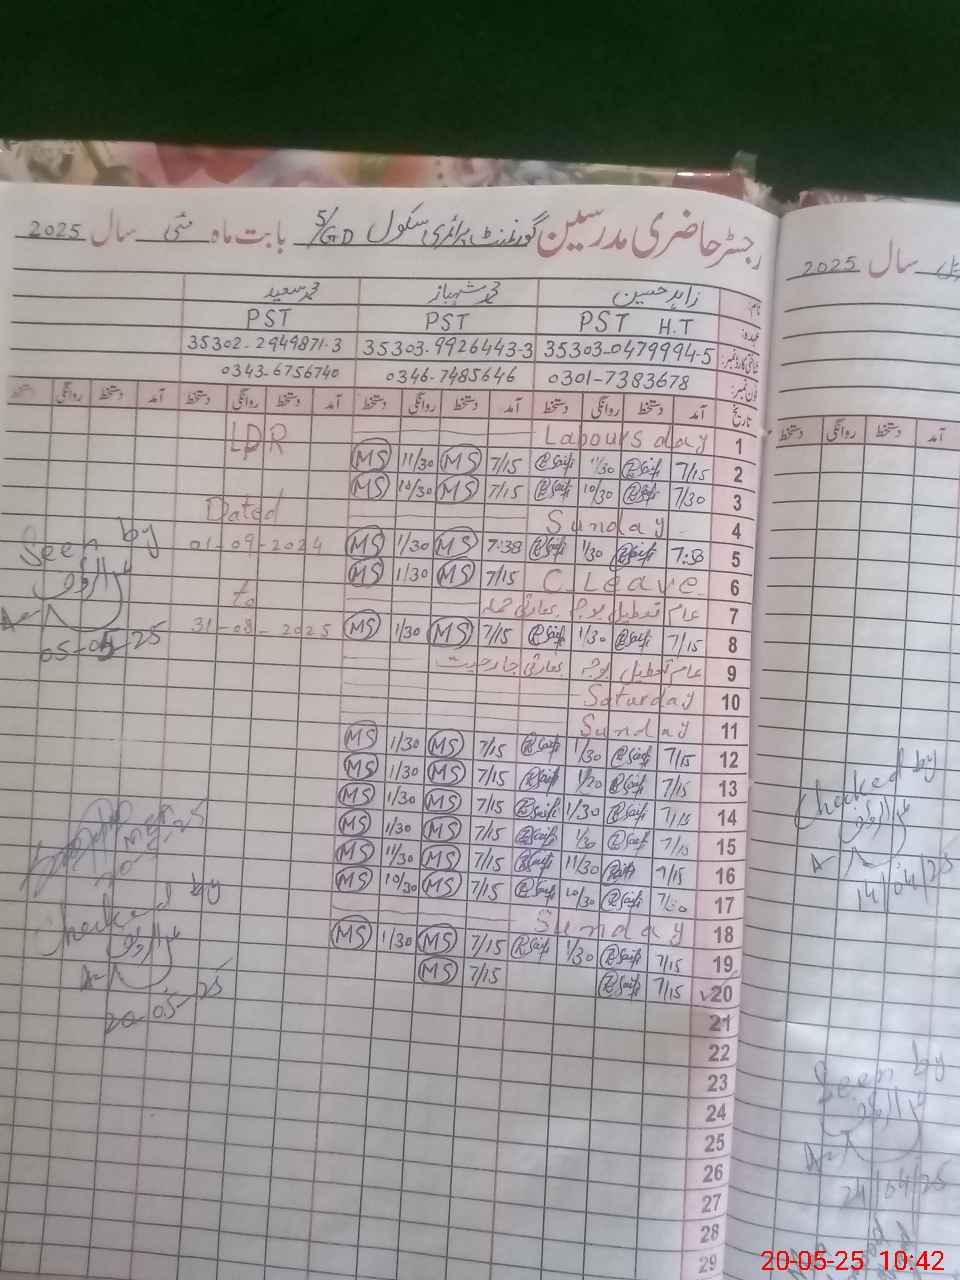 رجسٹر حاضری مدرسین گورنمنٹ پرائمری سکول 5/GD بابت ماہ مئی سال 2025
نام: زاہد حسین محمد شہباز محمد سعید
عہدہ: PST H.T PST PST
شناختی کارڈ نمبر: 35303-0479994-5 35303-9926443-3 35302-2949871-3
فون نمبر: 0301-7383678 0346-7485646 0343-6756740
تاریخ آمد دستخط روانگی دستخط آمد دستخط روانگی دستخط آمد دستخط روانگی دستخط آمد دستخط روانگی دستخط
1 Labours day
LPR
2 7/15 11/30 7/15 MS 11/30 MS
3 7/30 10/30 7/15 MS 10/30 MS
Dated
4 Sunday
01-09-2024
5 1/30 7:38 MS 1/30 MS
6 C. Leave 7/15 MS 1/30 MS
to
7 عام تعطیل بوجہ بھارتی حملہ
31-08-2025
8 7/15 1/30 7/15 MS 1/30 MS
9 عام تعطیل بوجہ بھارتی جارحیت
10 Saturday
11 Sunday
12 7/15 1/30 7/15 MS 1/30 MS
13 7/15 7/15 MS 1/30 MS
14 7/15 1/30 7/15 MS 1/30 MS
15 7/15 1/30 7/15 MS 1/30 MS
16 7/15 11/30 7/15 MS 11/30 MS
17 10/30 7/15 MS 10/30 MS
18 Sunday
19 7/15 1/30 7/15 MS 1/30 MS
20 7/15 7/15 MS
21
22
23
24
25
26
27
28
29
Seen by
05-05-25
Checked by
20-05-25
سال 2025
آمد دستخط روانگی دستخط
Checked by
14/04/25
Seen by
24/04/25
20-05-25 10:42